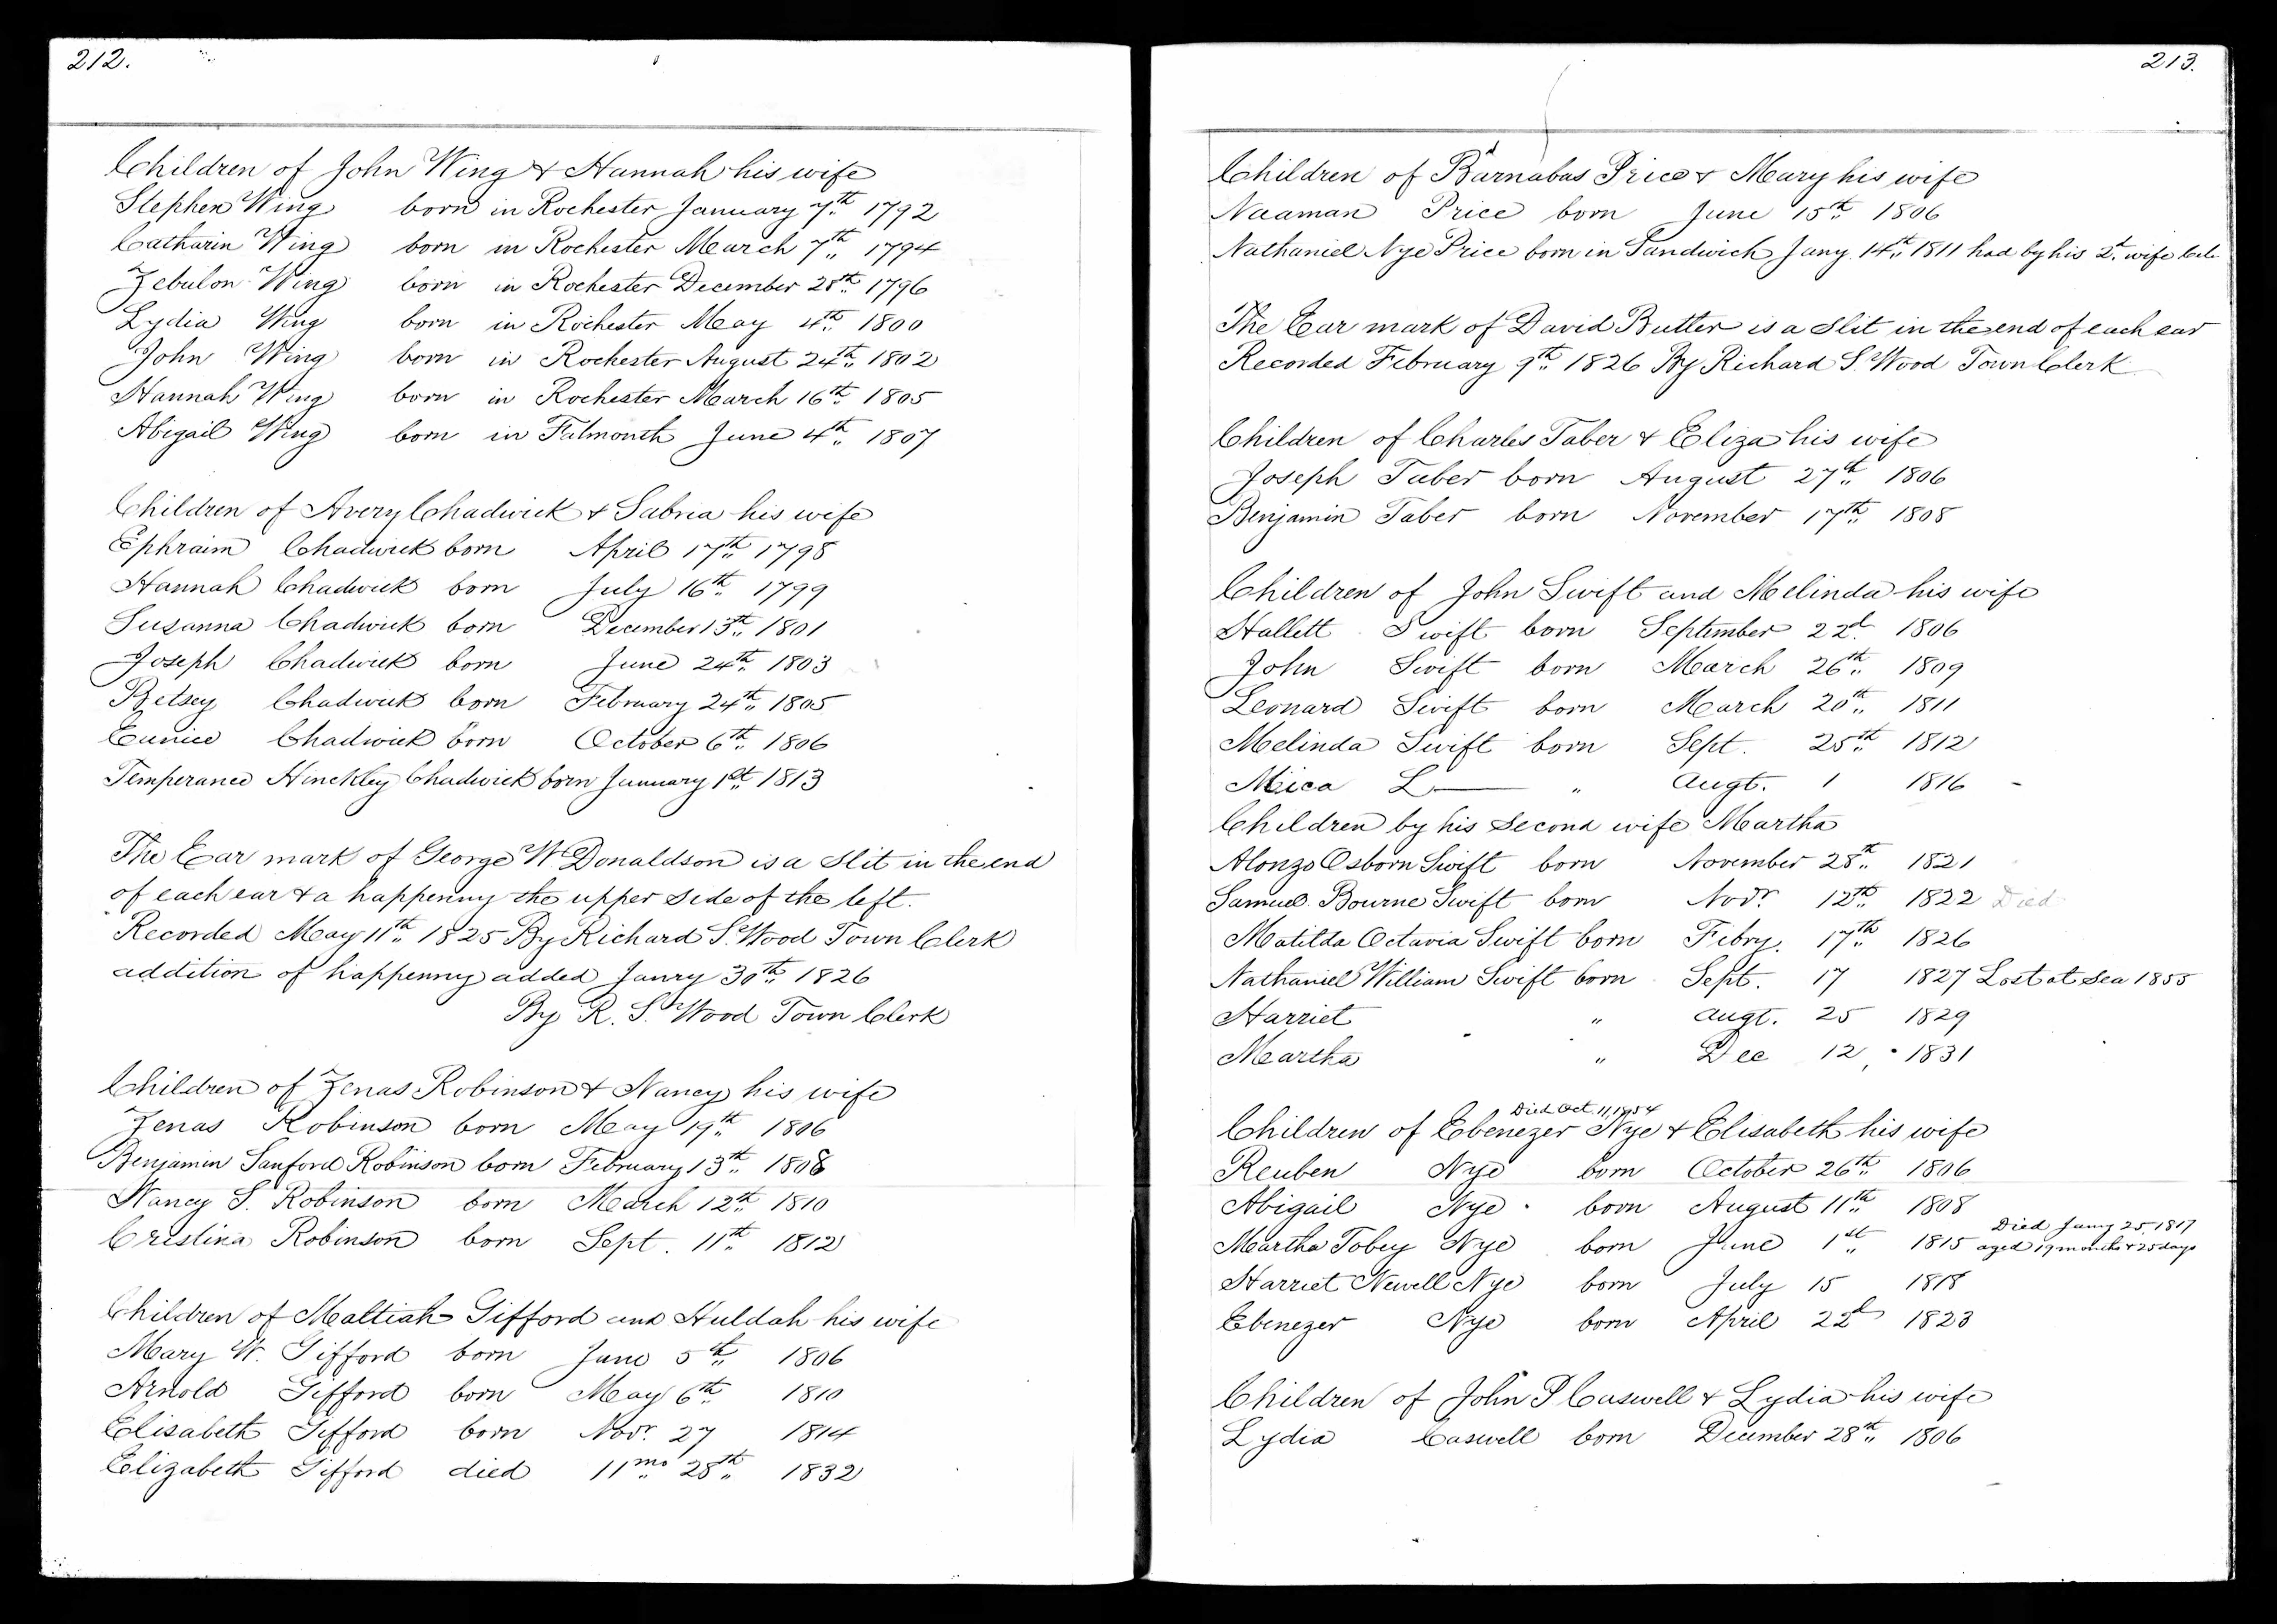 212.
Children of John Wing & Hannah his wife
Stephen Wing born in Rochester January 7th 1792
Catharin Wing born in Rochester March 7th 1794
Zebulon Wing born in Rochester December 28th 1796
Lydia Wing born in Rochester May 4th 1800
John Wing born in Rochester August 24th 1802
Hannah Wing born in Rochester March 16th 1805
Abigail Wing born in Falmouth June 4th 1807
Children of Avery Chadwick & Sabria his wife
Ephraim Chadwick born April 17th 1798
Hannah Chadwick born July 16th 1799
Susanna Chadwick born December 13th 1801
Joseph Chadwick born June 24th 1803
Betsey Chadwick born February 24th 1805
Eunice Chadwick born October 6th 1806
Temperance Hinckley Chadwick born January 1st 1813
The Ear mark of George W Donaldson is a slit in the end
of each ear & a happenny the upper side of the left.
Recorded May 11th 1825 By Richard S. Wood Town Clerk
addition of happenny added Janry 30th 1826
By R. S. Wood Town Clerk
Children of Zenas Robinson & Nancy his wife
Zenas Robinson born May 19th 1806
Benjamin Sanford Robinson born February 13th 1808
Nancy S. Robinson born March 12th 1810
Cristina Robinson born Sept. 11th 1812
Children of Maltiah Gifford and Huldah his wife
Mary W. Gifford born June 5th 1806
Arnold Gifford born May 6th 1810
Elisabeth Gifford born Novr. 27 1814
Elizabeth Gifford died 11mo 28th 1832
213.
Children of Barnabas Price & Mary his wife
Naaman Price born June 15th 1806
Nathaniel Nye Price born in Sandwich Jany 14th 1811 had by his 2d wife
The Ear mark of David Butler is a slit in the end of each ear
Recorded February 9th 1826 By Richard S. Wood Town Clerk
Children of Charles Taber & Eliza his wife
Joseph Taber born August 27th 1806
Benjamin Taber born November 17th 1808
Children of John Swift and Melinda his wife
Hallett Swift born September 22d 1806
John Swift born March 26th 1809
Leonard Swift born March 20th 1811
Melinda Swift born Sept. 25th 1812
Mica L— " Augt. 1 1816 -
Children by his second wife Martha
Alonzo Osborn Swift born November 28th 1821
Samuel Bourne Swift born Novr. 12th 1822 Died
Matilda Octavia Swift born Febry. 17th 1826
Nathaniel William Swift born Sept. 17 1827 Lost at Sea 1855
Harriet " Augt. 25 1829
Martha " Dec 12 1831
Died Oct. 11, 1854
Children of Ebenezer Nye & Elisabeth his wife
Reuben Nye born October 26th 1806
Abigail Nye born August 11th 1808
Died Jany 25, 1817
Martha Tobey Nye born June 1st 1815 aged 19 months & 25 days
Harriet Newell Nye born July 15 1818
Ebenezer Nye born April 22d 1823
Children of John P Caswell & Lydia his wife
Lydia Caswell born December 28th 1806